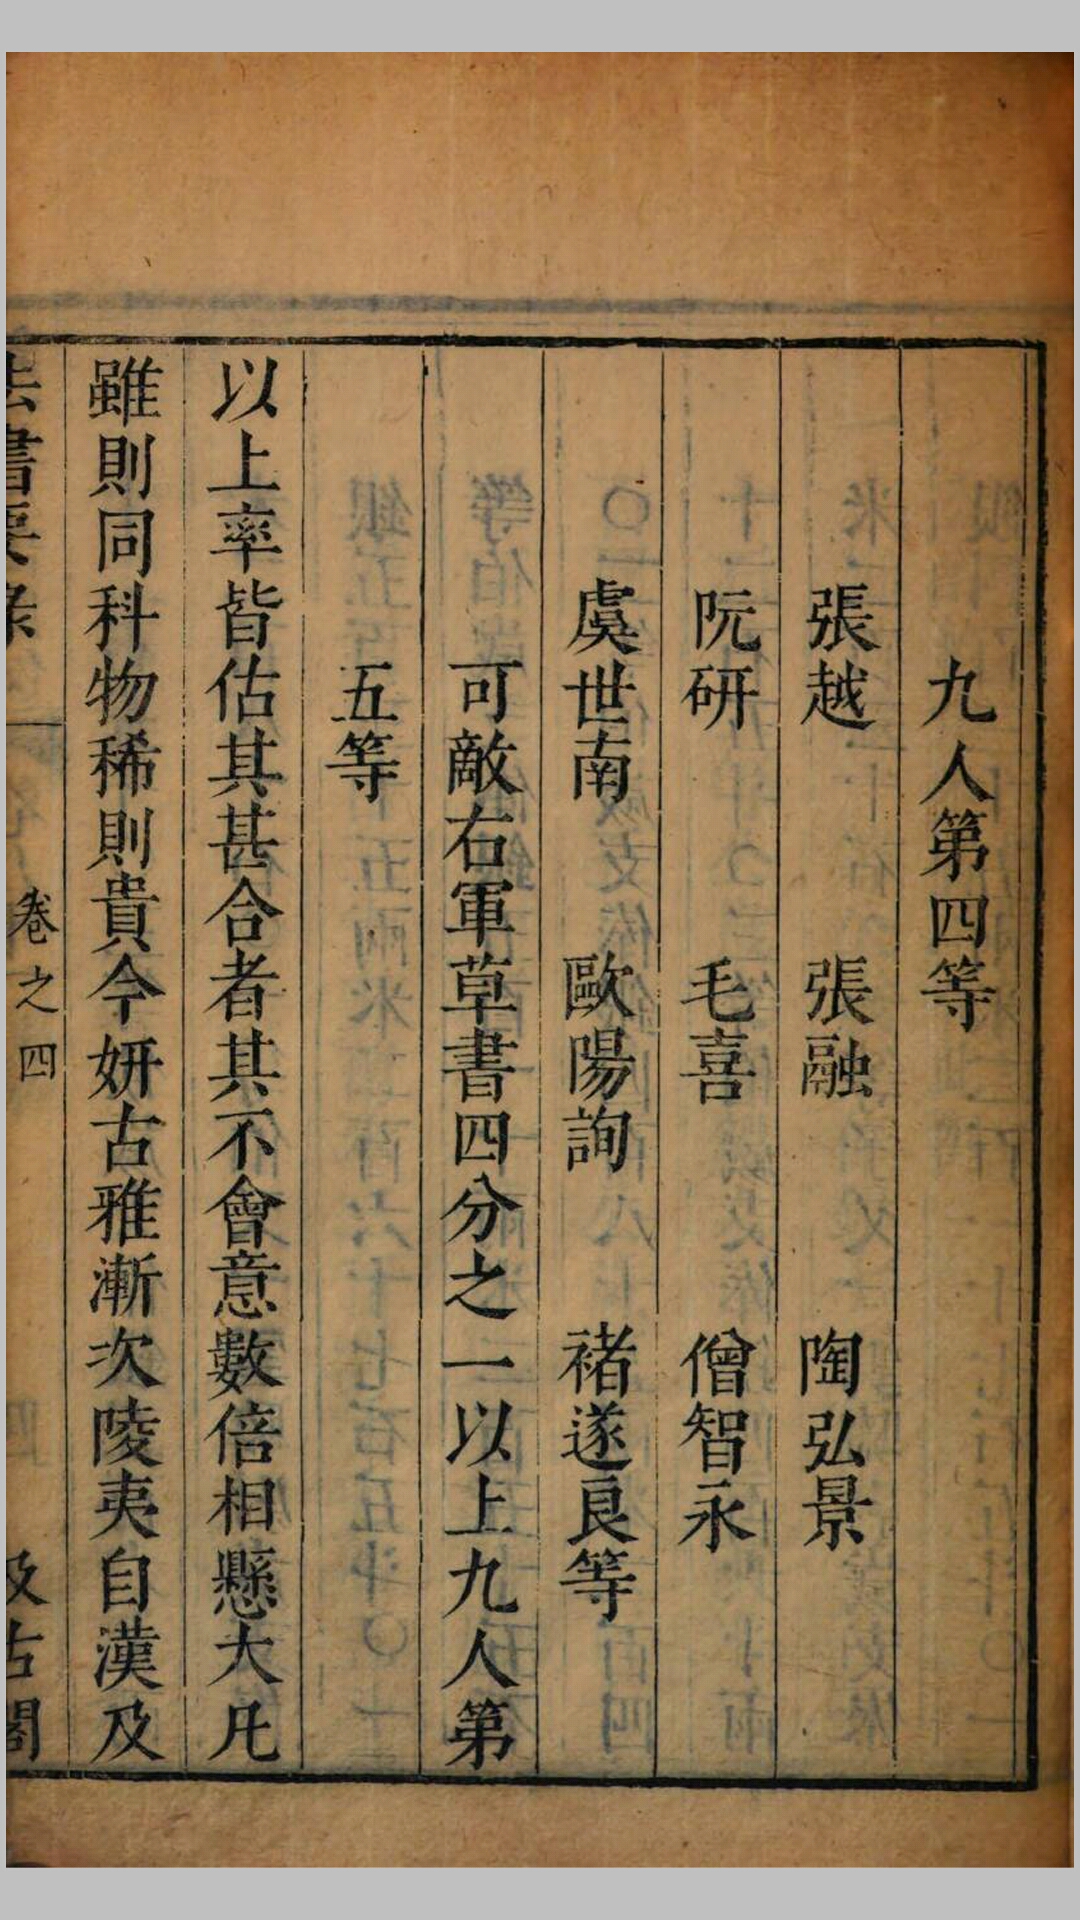 九人第四等
張越　張融　陶弘景
阮研　毛喜　僧智永
虞世南　歐陽詢　褚遂良等
可敵右軍草書四分之一以上九人第
五等
以上率皆估其甚合者其不會意數倍相懸大凡
雖則同科物稀則貴今妍古雅漸次陵夷自漢及
法書要錄　卷之四　汲古閣